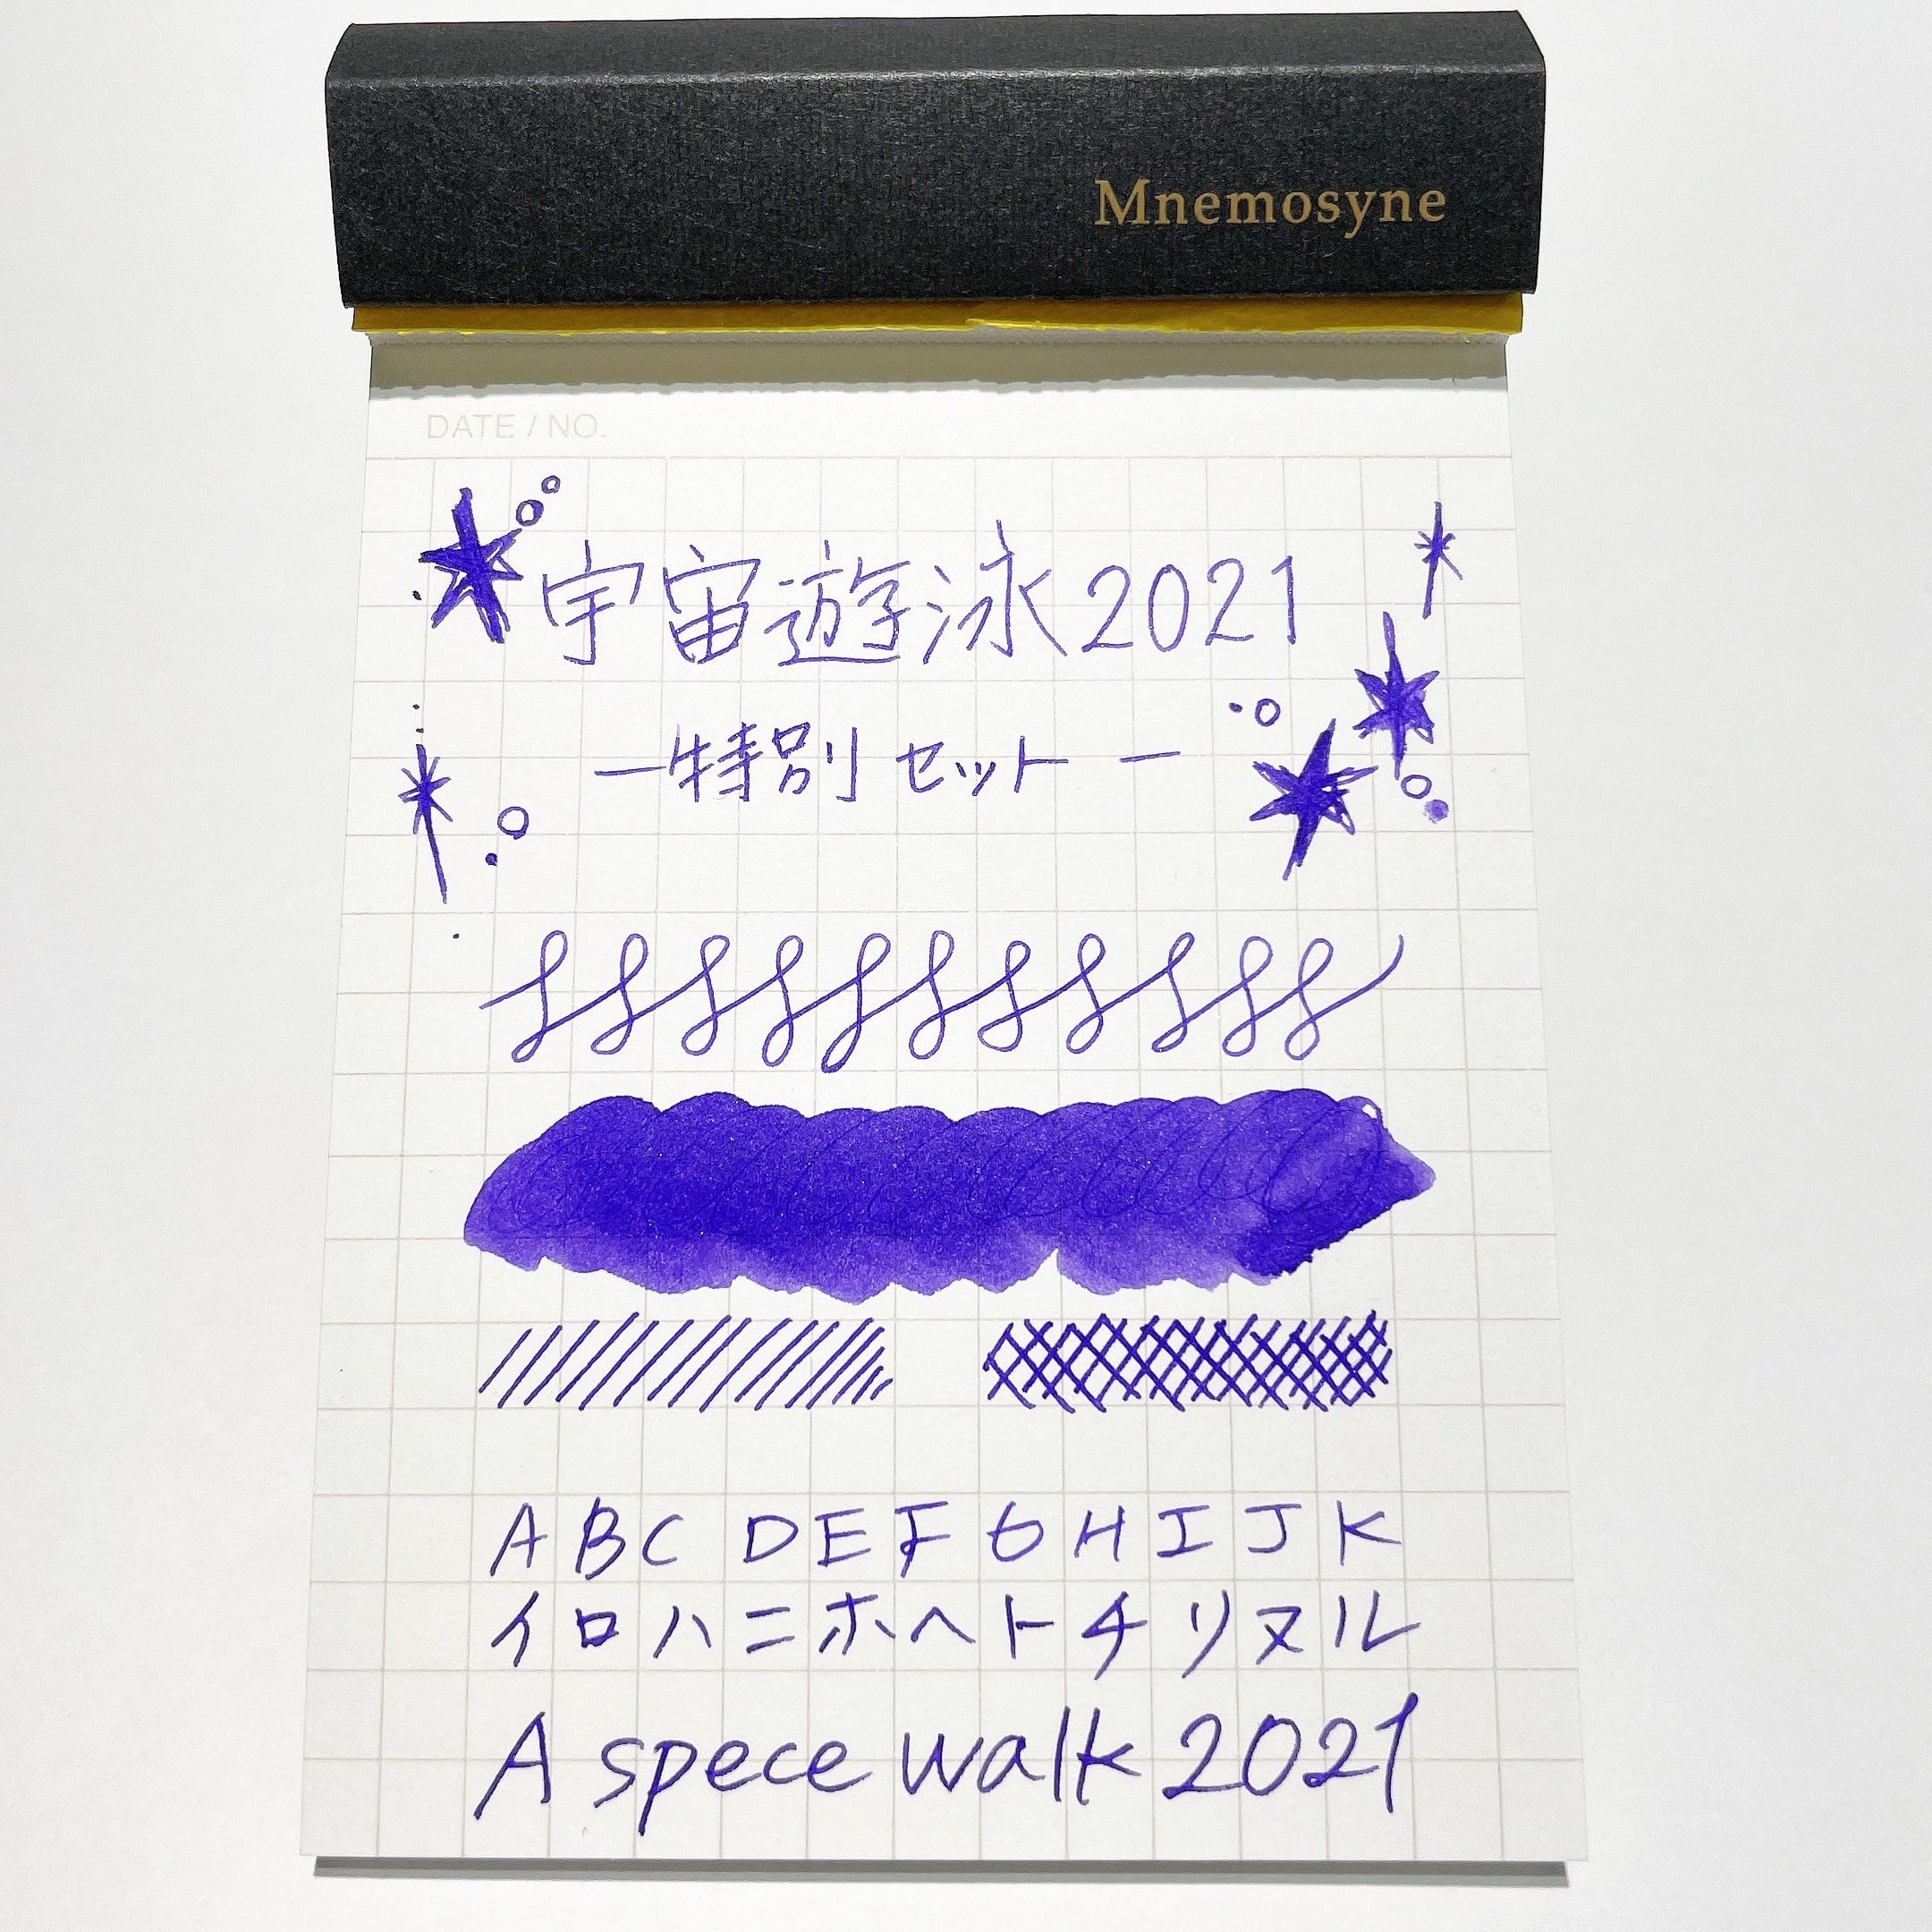 Mnemosyne
DATE / NO.
宇宙遊泳2021
―特別セット―
A B C D E F G H I J K
イ ロ ハ ニ ホ ヘ ト チ リ ヌ ル
A spece walk 2021